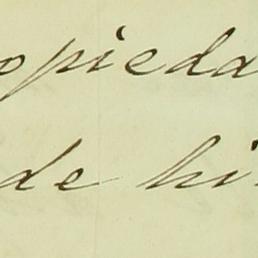 opieda
de hi